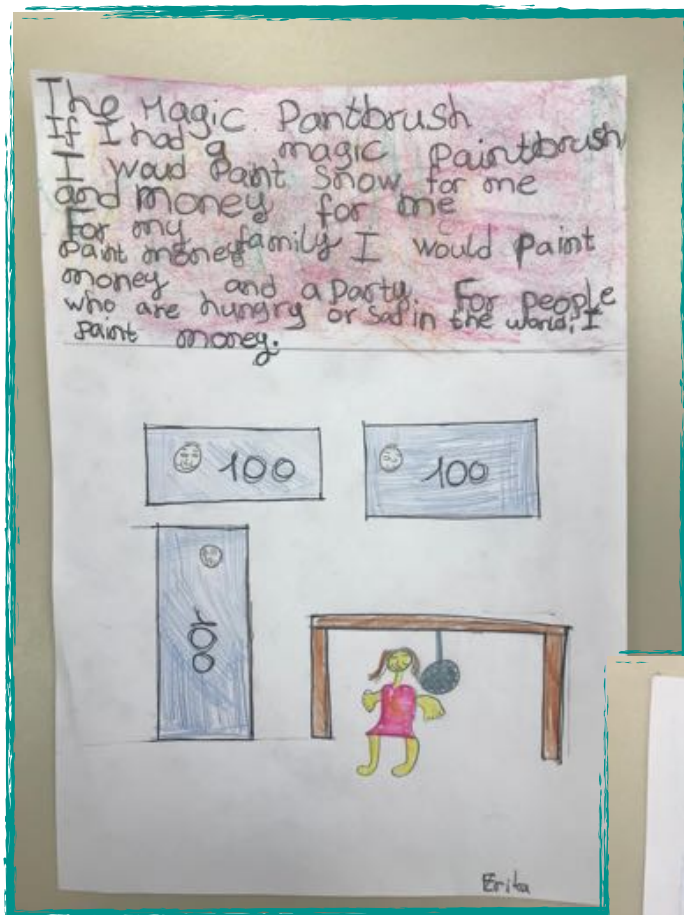 The Magic Pantbrush
If I had a magic paintbrush
I woud Paint Snow for me
and money for me
For my family I would paint
paint money
money and a party. For people
who are hungry or sad in the world, I
paint money.
100
100
100
Erika